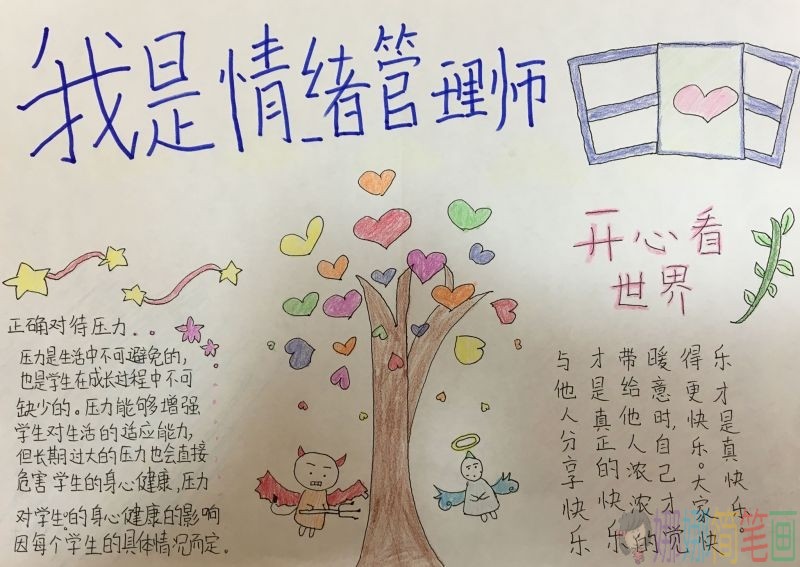 我是情绪管理师
开心看
世界
正确对待压力..
压力是生活中不可避免的,
也是学生在成长过程中不可
缺少的。压力能够增强
学生对生活的适应能力,
但长期过大的压力也会直接
危害学生的身心健康,压力
对学生的身心健康的影响
因每个学生的具体情况而定。
与他人分享快乐
才是真正的快乐
带给他人浓浓的
暖意时,自己才觉
得更快乐。大家快
乐才是真快乐。
娜娜简笔画